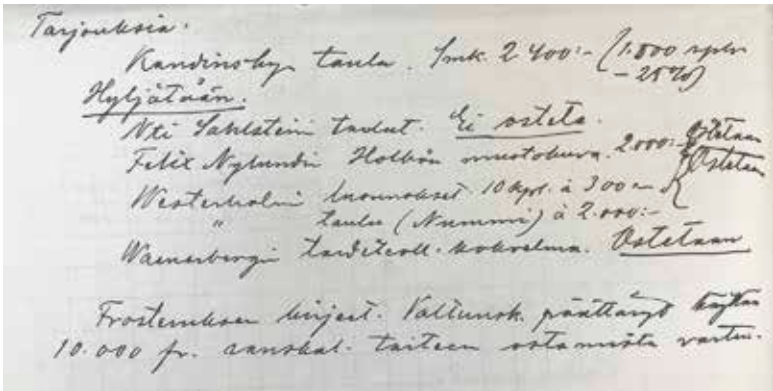 Tarjouksia.
Kandinskyn taulu. Smk. 2400:- (1.800 rplr
- 25%)
Hyljätään.
Nti Sahlstein taulut. Ei osteta.
Felix Nylundin Holbän muotokuva. 2.000:- Ostetaan
Westerholmin luonnokset 10 kpl. à 300:- Ostetaan
" taulu (Nummi) à 2.000:-
Waenerbergin taideteoll. kokoelma. Ostetaan
Frosteruksen kirjeet. Valtuusk. päättänyt käyttää
10.000 fr. ranskal. taiteen ostamista varten.